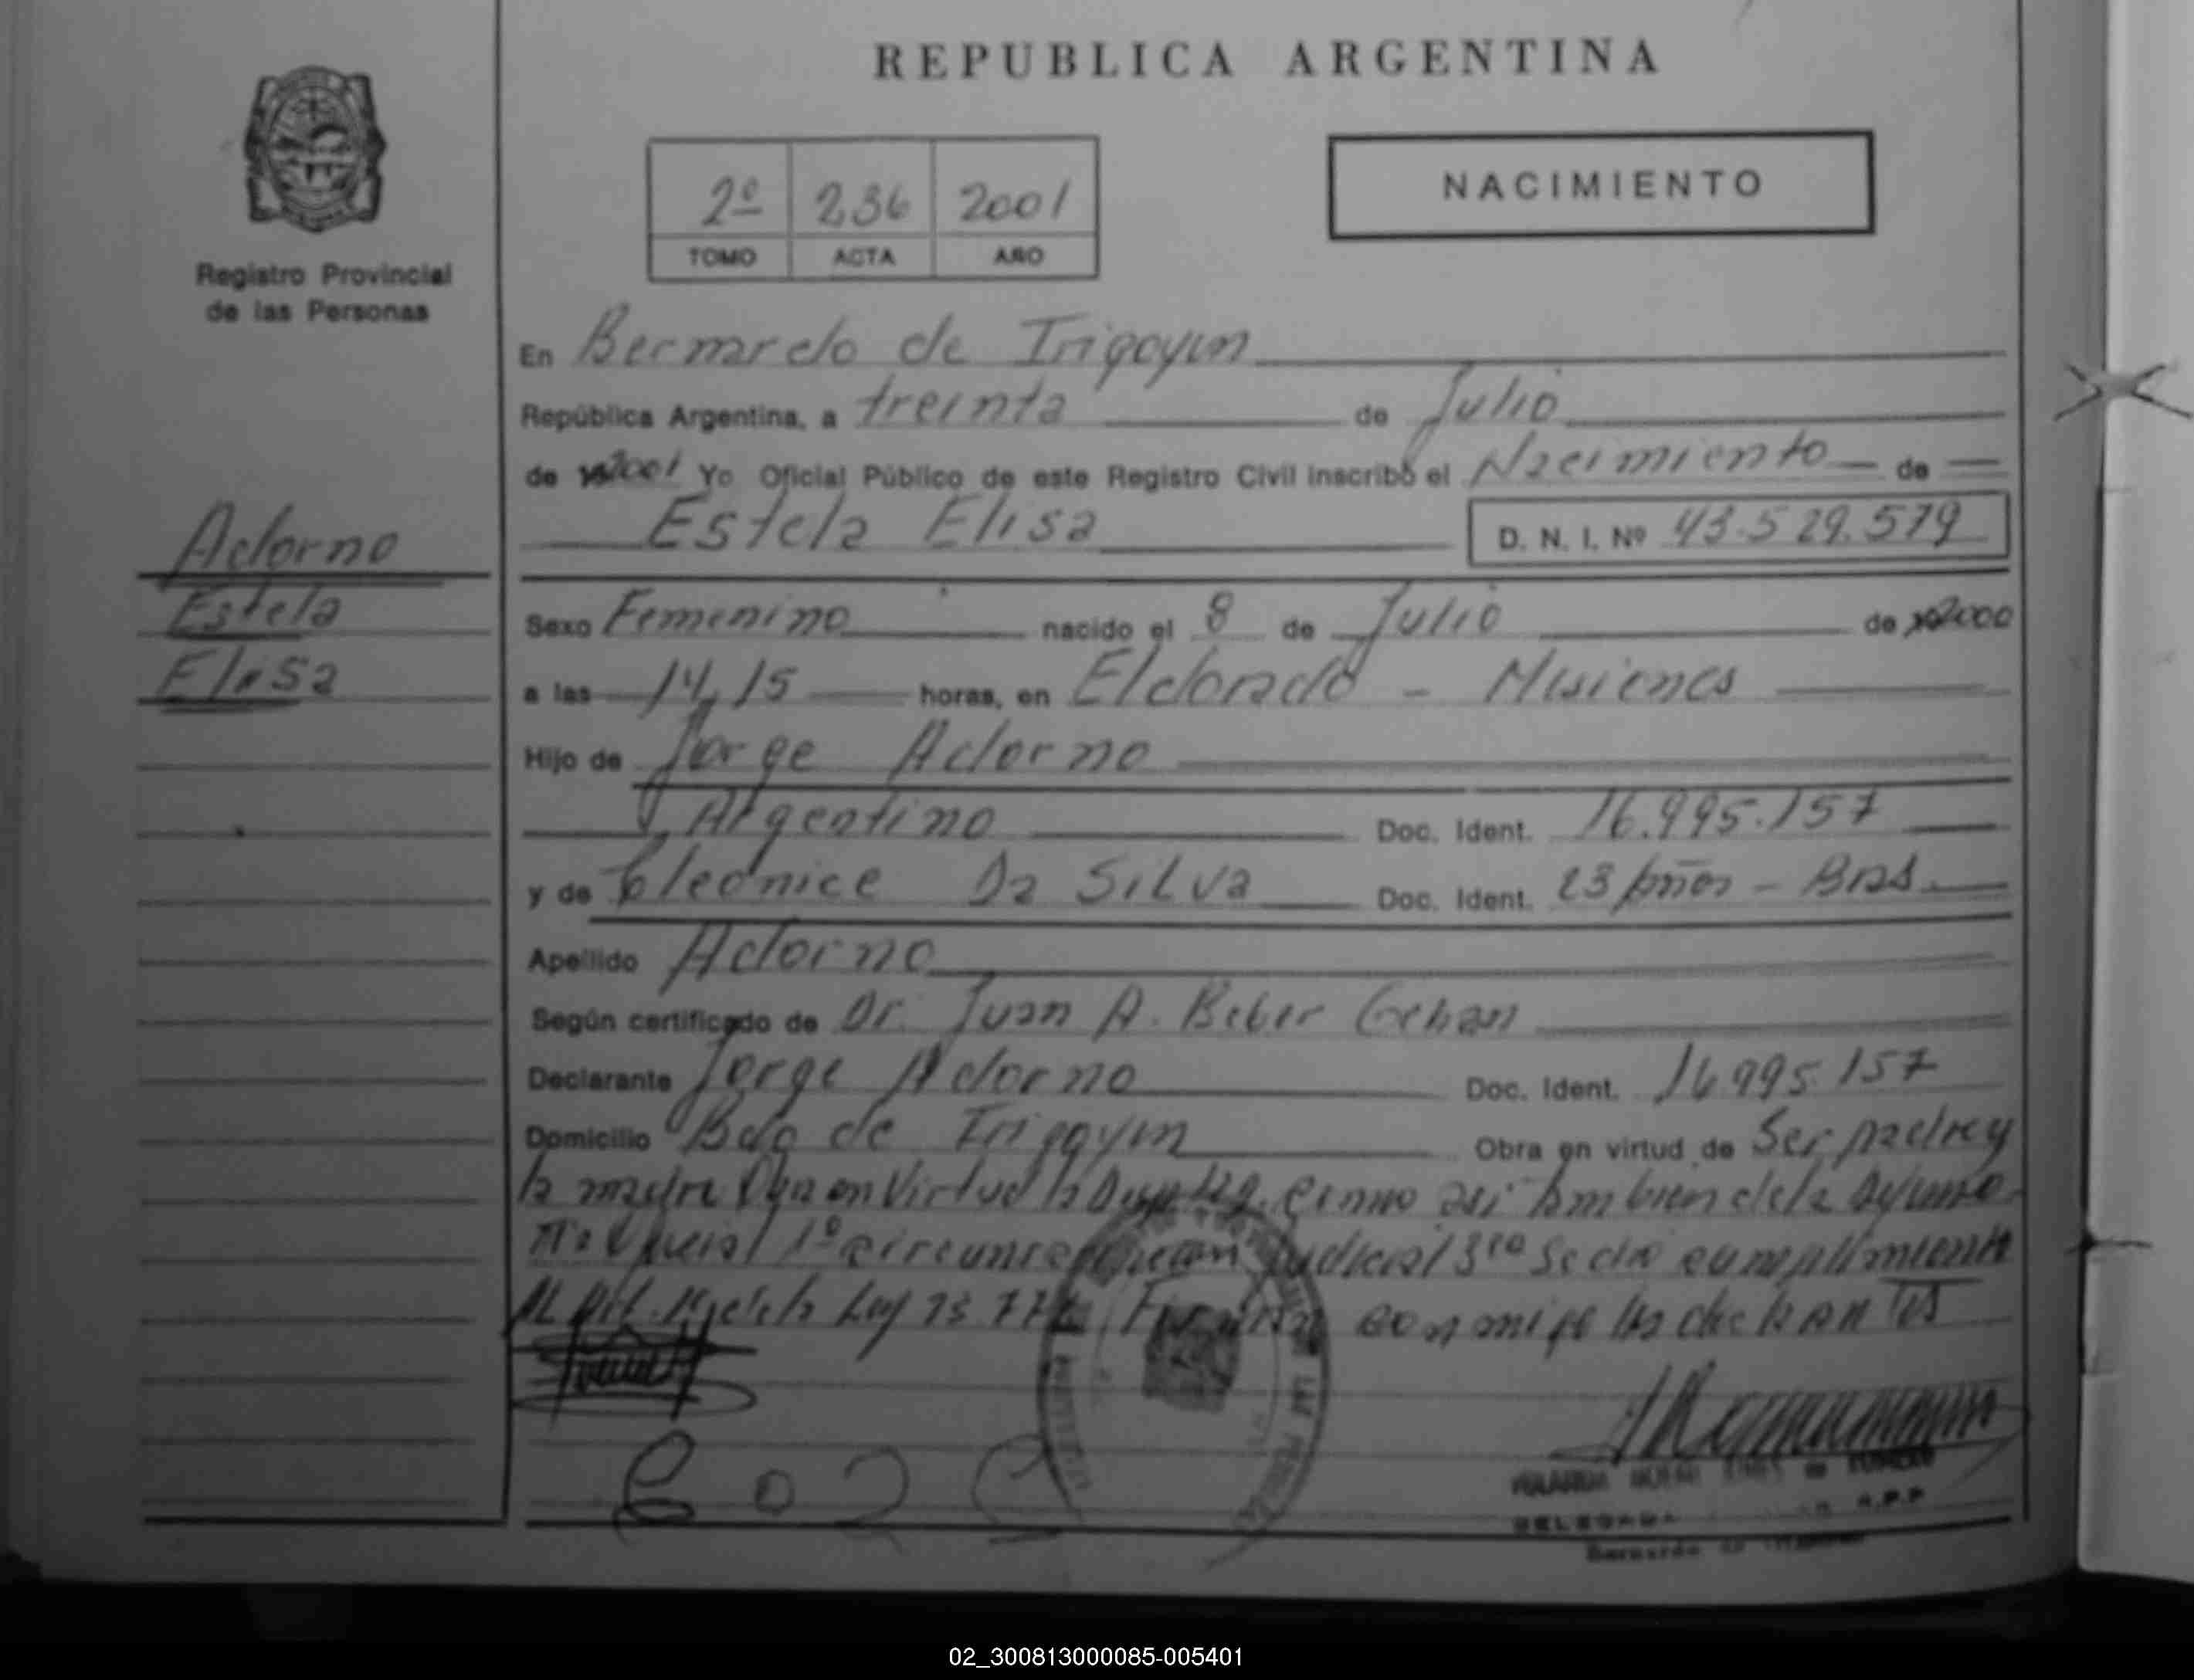 REPUBLICA ARGENTINA
2º 236 2001
TOMO ACTA AÑO
NACIMIENTO
Registro Provincial
de las Personas
En Bernardo de Irigoyen
República Argentina, a treinta de Julio
de 2001 Yo Oficial Público de este Registro Civil inscribo el Nacimiento de
Estela Elisa D. N. I. Nº 43.529.579
Adorno
Estela
Elisa
Sexo Femenino nacido el 8 de Julio de 2000
a las 14,15 horas, en Eldorado - Misiones
Hijo de Jorge Adorno
Argentino Doc. Ident. 16.995.157
y de Cleonice Da Silva Doc. Ident. 23 años - Bras.
Apellido Adorno
Según certificado de Dr. Juan A. Beber Gehan
Declarante Jorge Adorno Doc. Ident. 16.995.157
Domicilio Bdo de Irigoyen Obra en virtud de Ser padre y
la madre en Virtud la como asi tambien de la
1º circunscripcion Judicial 3ra cumplimiento
de la Ley 13.777 Firman conmigo los declarantes
DELEGADA R.P.P
Bernardo de Irigoyen
02_300813000085-005401